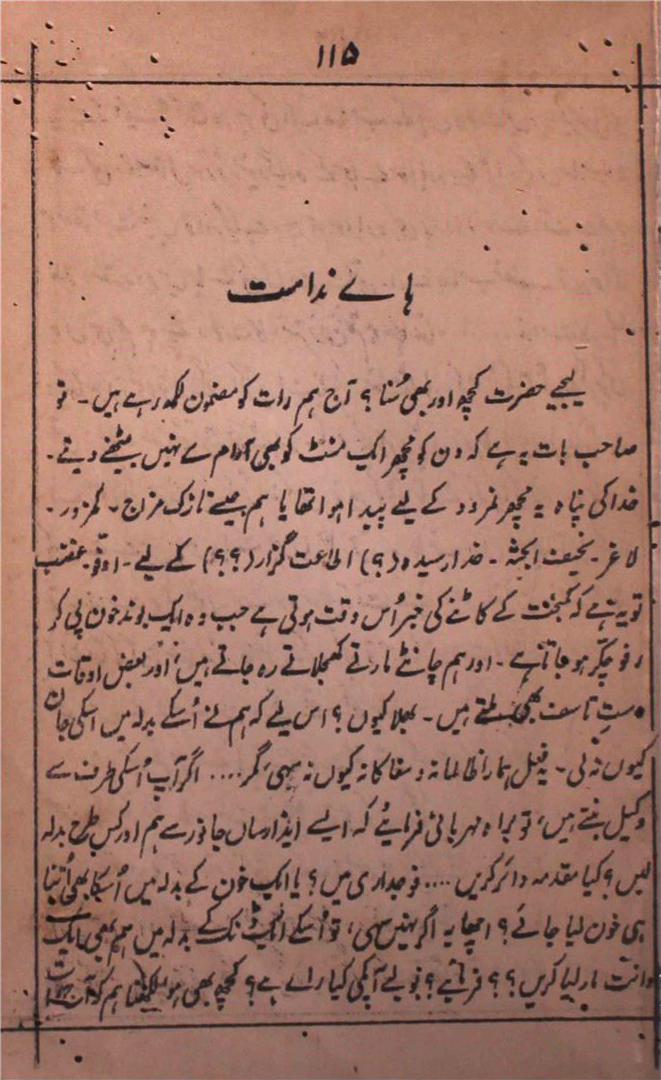 ۱۱۵
ہاے ندامت
لیجیے حضرت کچھ اور بھی سُنا؟ آج ہم رات کو مضمون لکھ رہے ہیں۔ تو
صاحب بات یہ ہے کہ دن کو مچھر ایک منٹ کو بھی آرام سے نہیں بیٹھنے دیتے۔
خدا کی پناہ یہ مچھر نمرود کے لیے پیدا ہوا تھا یا ہم جیسے نازک مزاج۔ کمزور۔
لاغر۔ نحیف الجثہ۔ خدا رسیدہ (؟) اطاعت گزار (؟؟) کے لیے۔ اوفّو غضب
تو یہ ہے کہ کمبخت کے کاٹنے کی خبر اُس وقت ہوتی ہے جب وہ ایک بوند خون پی کر
رفو چکّر ہو جاتا ہے۔ اور ہم چانٹے مارتے کھجلاتے رہ جاتے ہیں، اور بعض اوقات
دستِ تاسف بھی ملتے ہیں۔ بھلا کیوں؟ اس لیے کہ ہم نے اُسکے بدلہ میں اسکی جان
کیوں نہ لی۔ یہ فعل ہمارا ظالمانہ و سفاکانہ کیوں نہ سہی، مگر.... اگر آپ اُسکی طرف سے
وکیل بنتے ہیں، تو براہ مہربانی فرمائیے کہ ایسے ایذا رساں جانور سے ہم اور کس طرح بدلہ
لیں؟ کیا مقدمہ دائر کریں.... فوجداری میں؟ یا ایک خون کے بدلہ میں اُسکا بھی اُتنا
ہی خون لیا جائے؟ اچھا یہ اگر نہیں سہی، تو اُسکے ایک ڈنک کے بدلہ میں ہم بھی ایک
دانت مار لیا کریں؟؟ فرمائیے؟ بولیے آپکی کیا راے ہے؟ کچھ بھی ہو لکھنا ہم کو